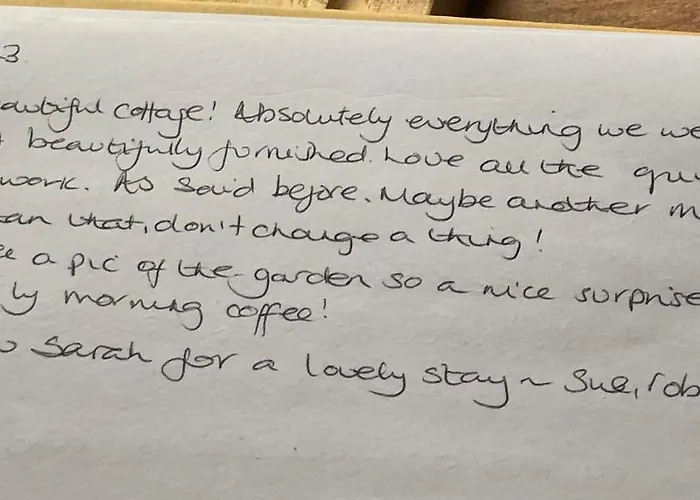 3
autiful cottage! Absolutely everything we we
beautifully furnished. Love all the qui
work. As said before. Maybe another m
an that, don't change a thing!
ee a pic of the garden so a nice surprise
ly morning coffee!
o Sarah for a lovely stay ~ Sue, rob